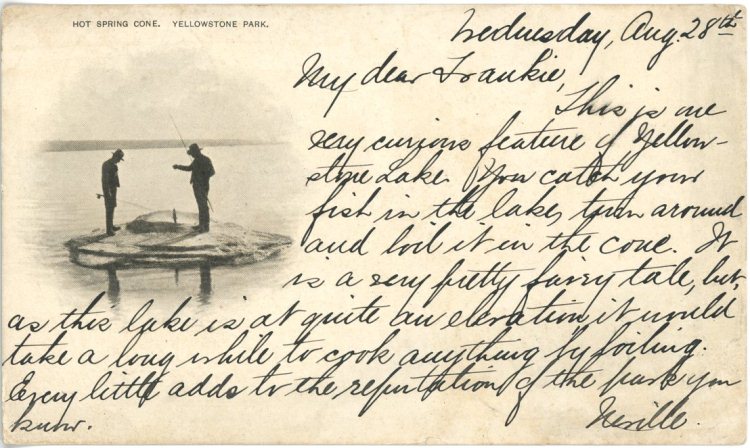 HOT SPRING CONE. YELLOWSTONE PARK.
Wednesday, Aug. 28th
My dear Frankie,
This is one
very curious feature of Yellow-
stone Lake. You catch your
fish in the lake, turn around
and boil it in the cone. It
is a very pretty fairy tale, but,
as this lake is at quite an elevation it would
take a long while to cook anything by boiling.
Every little adds to the reputation of the park you
know.
Neville.